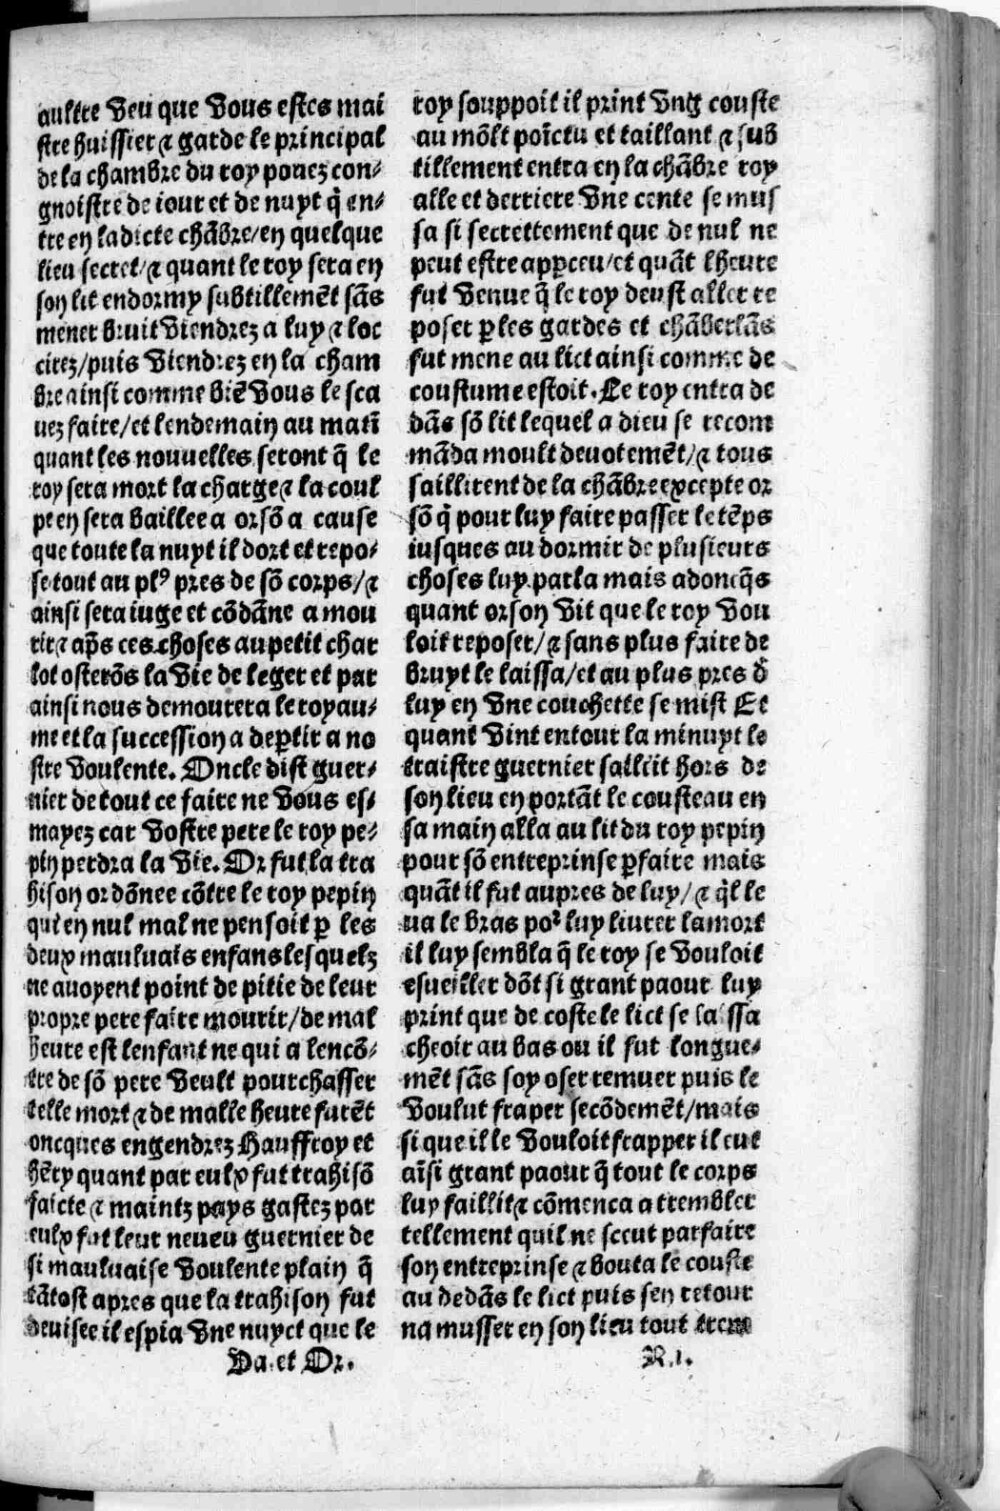 aultre veu que vous estes mai
stre huissier ⁊ garde le principal
de la chambre du roy pouez con-
gnoistre de iour et de nuyt q̃ en-
tre en ladicte chãbre/en quelque
lieu secret/⁊ quant le roy sera en
son lit endormy subtillemẽt sãs
mener bruit viendrez a luy ⁊ loc
cirez/puis viendrez en la cham
bre ainsi comme biẽ vous le sca
uez faire/et lendemain au matĩ
quant les nouuelles seront q̃ le
roy sera mort la charge ⁊ la coul
pe en sera baillee a orsõ a cause
que toute la nuyt il dort et repo-
se tout au plꝰ pres de sõ corps/⁊
ainsi sera iuge et cõdãne a mou
rir ⁊ ap̃s ces choses au petit char
lot osterõs la vie de leger et par
ainsi nous demourera le royau-
me et la succession a dep̱tir a no
stre voulente. Oncle dist guer-
nier de tout ce faire ne vous es-
mayez car vostre pere le roy pe-
pin perdra la vie. Or fut la tra
hison ordõnee cõtre le roy pepin
qui en nul mal ne pensoit p̱ les
deux mauluais enfans lesquelz
ne auoyent point de pitie de leur
propre pere faire mourir/de mal
heure est lenfant ne qui a lencõ-
tre de sõ pere veult pourchasser
telle mort ⁊ de malle heure furẽt
oncques engendrez hauffroy et
hẽry quant par eulx fut trahisõ
faicte ⁊ maintz pays gastez par
eulx fut leur neueu guernier de
si mauluaise voulente plain q̃
tãtost apres que la trahison fut
deuisee il espia vne nuyct que le
Va. et Or.
roy souppoit il print vng couste
au mõlt poĩctu et taillant ⁊ sub
tillement entra en la chãbre roy
alle et derriere vne cente se mus
sa si secrettement que de nul ne
peut estre app̱ceu/et quãt lheure
fut venue q̃ le roy deust aller re
poser p̱ les gardes et chãberlãs
fut mene au lict ainsi comme de
coustume estoit. Le roy entra de
dãs sõ lit lequel a dieu se recom
mãda moult deuotemẽt/⁊ tous
saillirent de la chãbre excepte or
sõ q̃ pour luy faire passer le tẽps
iusques au dormir de plusieurs
choses luy parla mais adoncq̃s
quant orson vit que le roy vou
loit reposer/⁊ sans plus faire de
bruyt le laissa/et au plus pres d̃
luy en vne couchette se mist Et
quant vint entour la minuyt le
traistre guernier saillit hors de
son lieu en portãt le cousteau en
sa main alla au lit du roy pepin
pour sõ entreprinse p̱faire mais
quãt il fut aupres de luy/⁊ q̃l le
ua le bras poᷣ luy liurer la mort
il luy sembla q̃ le roy se vouloit
esueiller dõt si grant paour luy
print que de coste le lict se laissa
cheoir au bas ou il fut longue-
mẽt sãs soy oser remuer puis le
voulut fraper secõdemẽt/mais
si que il le vouloit frapper il eut
aĩsi grant paour q̃ tout le corps
luy faillit ⁊ cõmenca a trembler
tellement quil ne sceut parfaire
son entreprinse ⁊ bouta le couste
au dedãs le lict puis sen retour
na musser en son lieu tout trem
R.i.